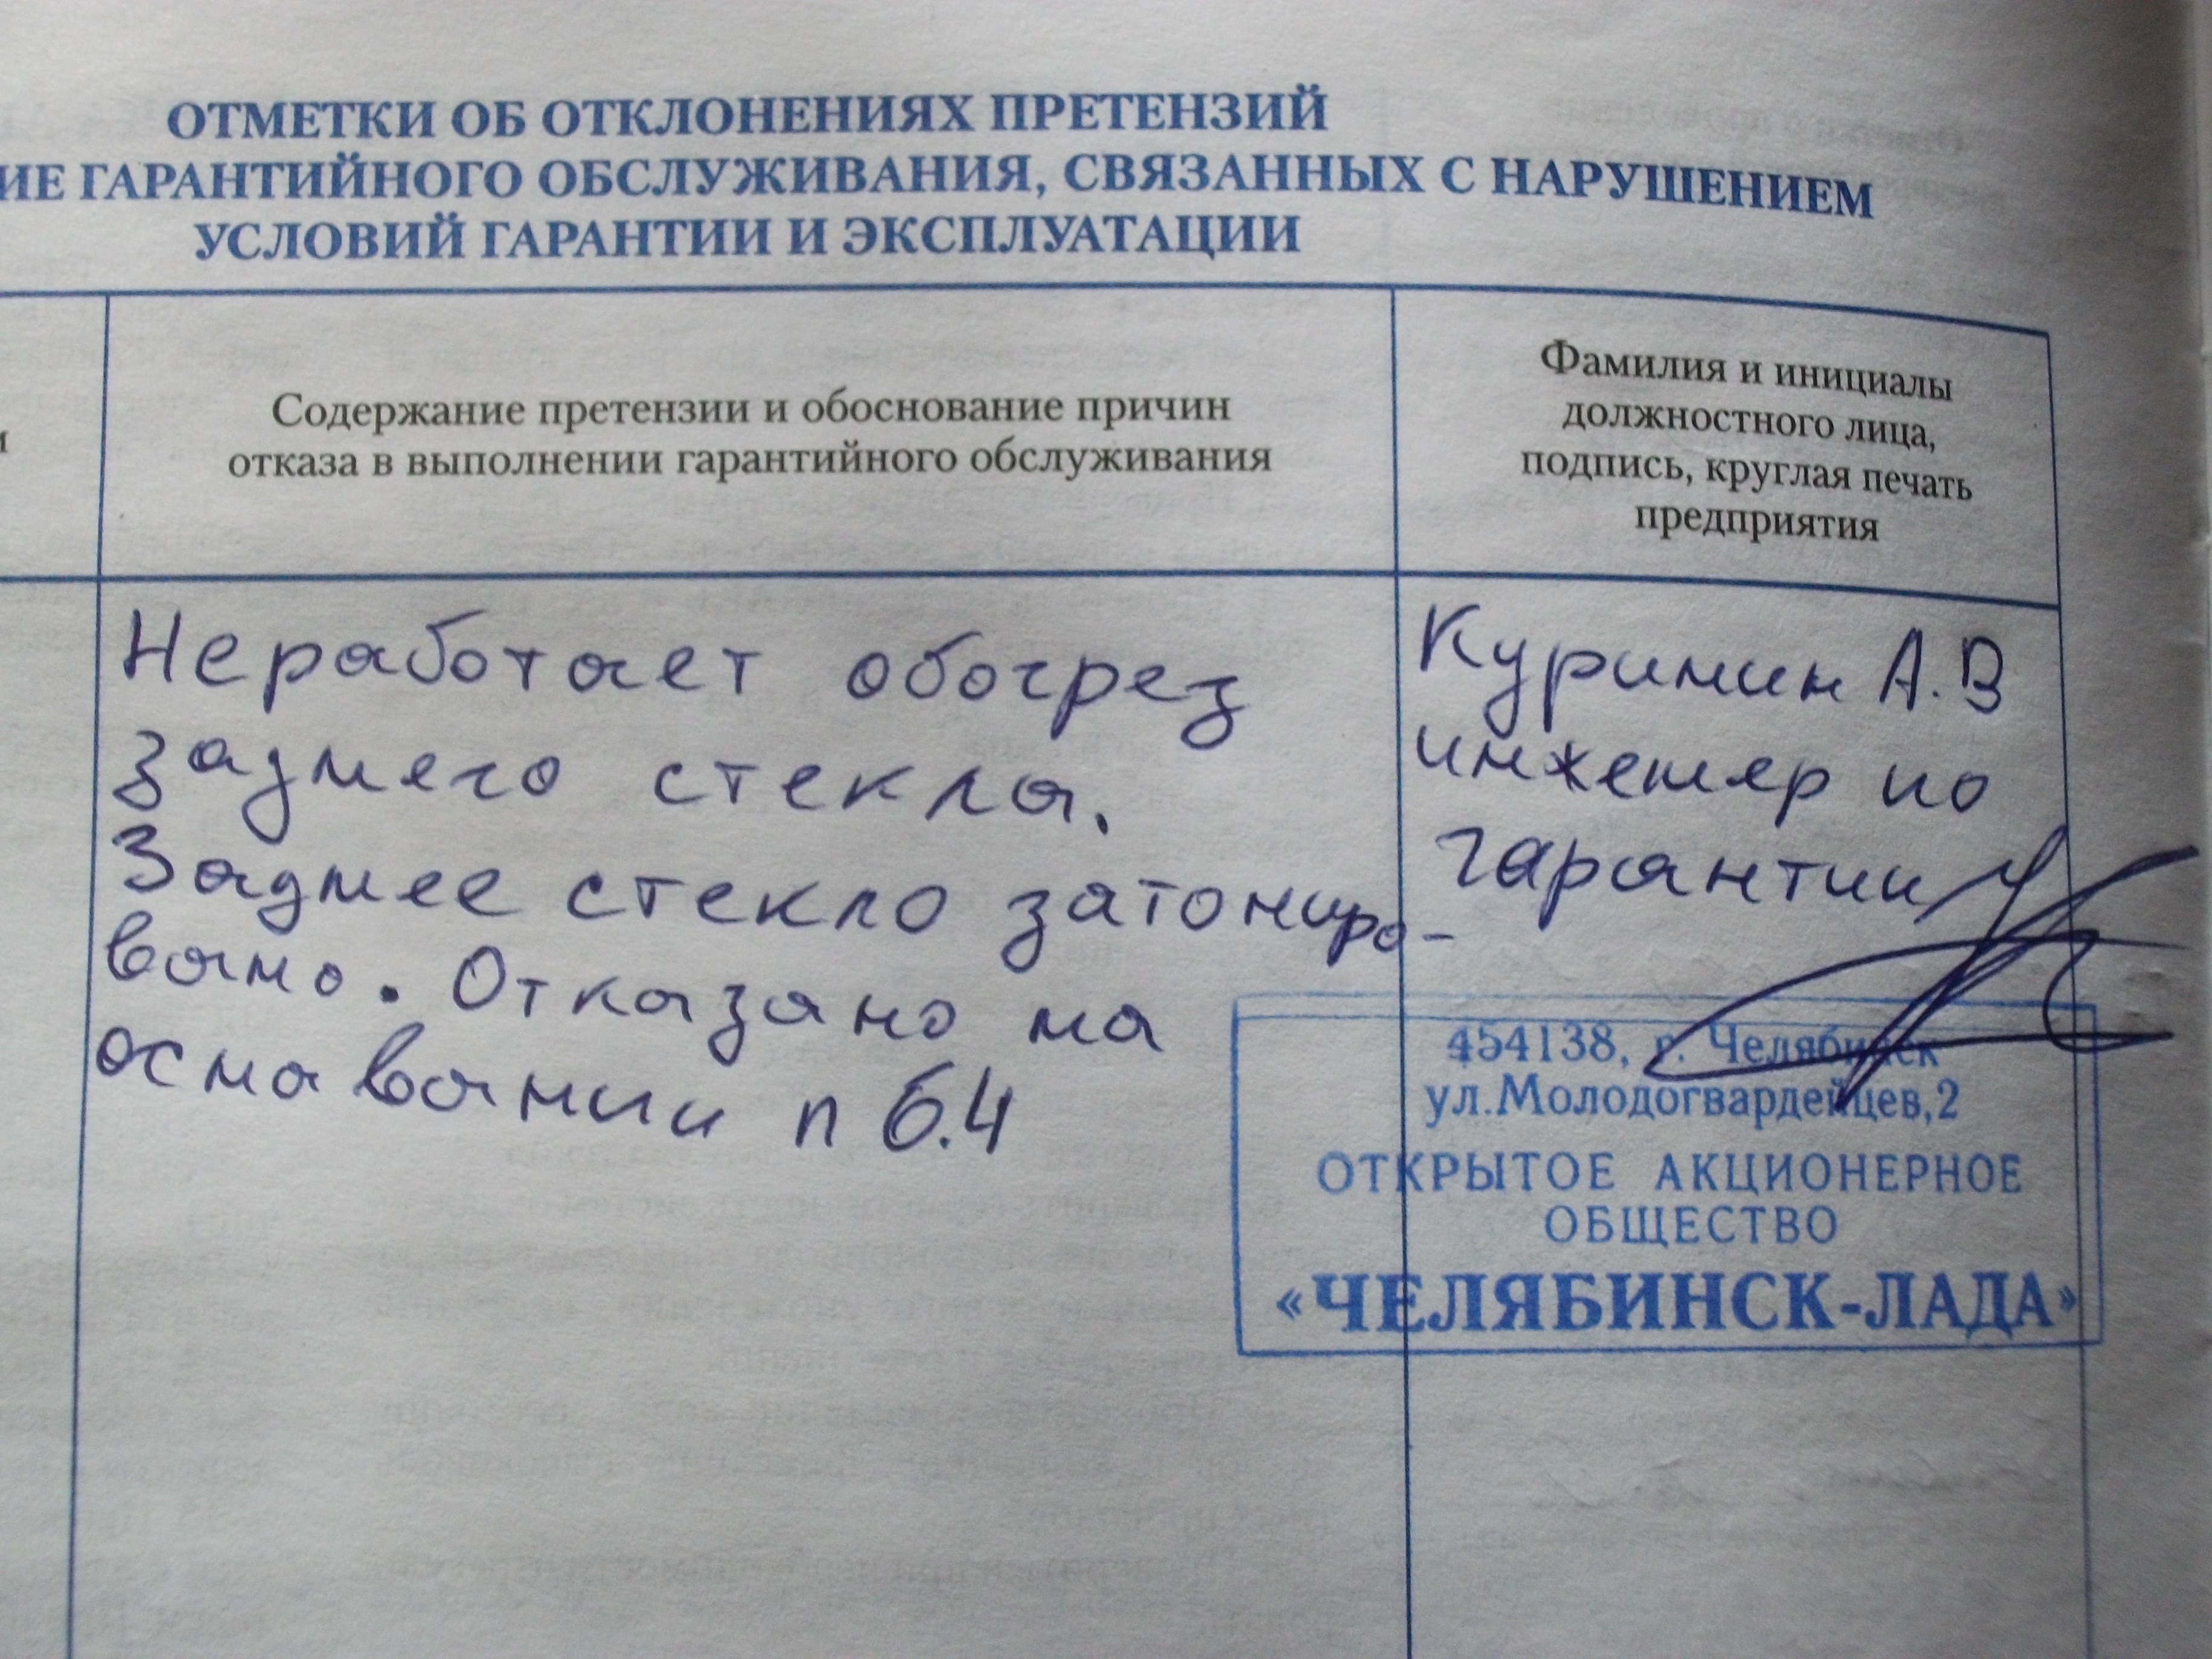 ОТМЕТКИ ОБ ОТКЛОНЕНИЯХ ПРЕТЕНЗИЙ
ИЕ ГАРАНТИЙНОГО ОБСЛУЖИВАНИЯ, СВЯЗАННЫХ С НАРУШЕНИЕМ
УСЛОВИЙ ГАРАНТИИ И ЭКСПЛУАТАЦИИ
Содержание претензии и обоснование причин
отказа в выполнении гарантийного обслуживания
Фамилия и инициалы
должностного лица,
подпись, круглая печать
предприятия
Неработает обогрез
заднего стекла.
Заднее стекло затониро-
вано. Отказано на
оснавании п 6.4
Куримин А.В
инженер по
гарантии
454138, г. Челябинск
ул.Молодогвардейцев,2
ОТКРЫТОЕ АКЦИОНЕРНОЕ
ОБЩЕСТВО
«ЧЕЛЯБИНСК-ЛАДА»